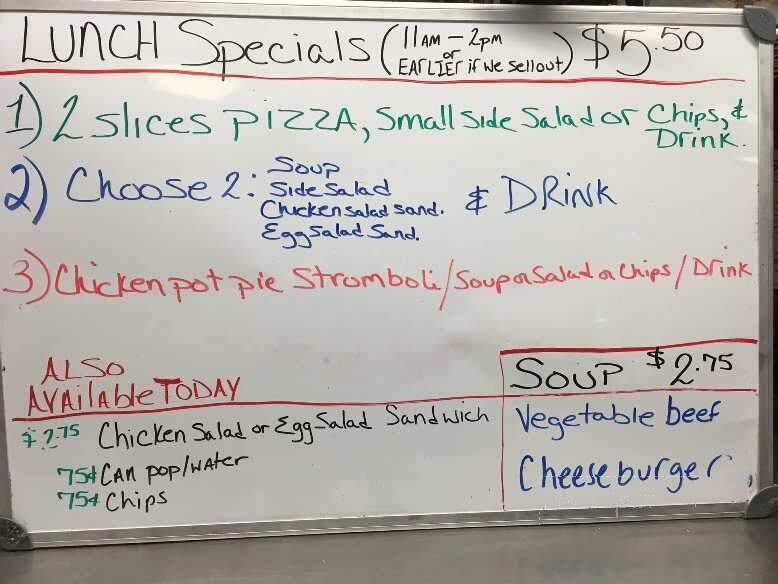 LUNCH Specials (11AM – 2pm or EARLIER if we sellout) $5.50
1) 2 slices PIZZA, Small Side Salad or Chips, &
Drink.
2) Choose 2: Soup
Side Salad
Chicken salad sand.
Egg Salad Sand.
& DRINK
3) Chicken pot pie Stromboli/Soup or Salad or Chips/Drink
ALSO
AVAilable TODAY
$2.75 Chicken Salad or Egg Salad Sandwich
75¢ CAN pop/water
75¢ Chips
SOUP $2.75
Vegetable beef
Cheeseburger